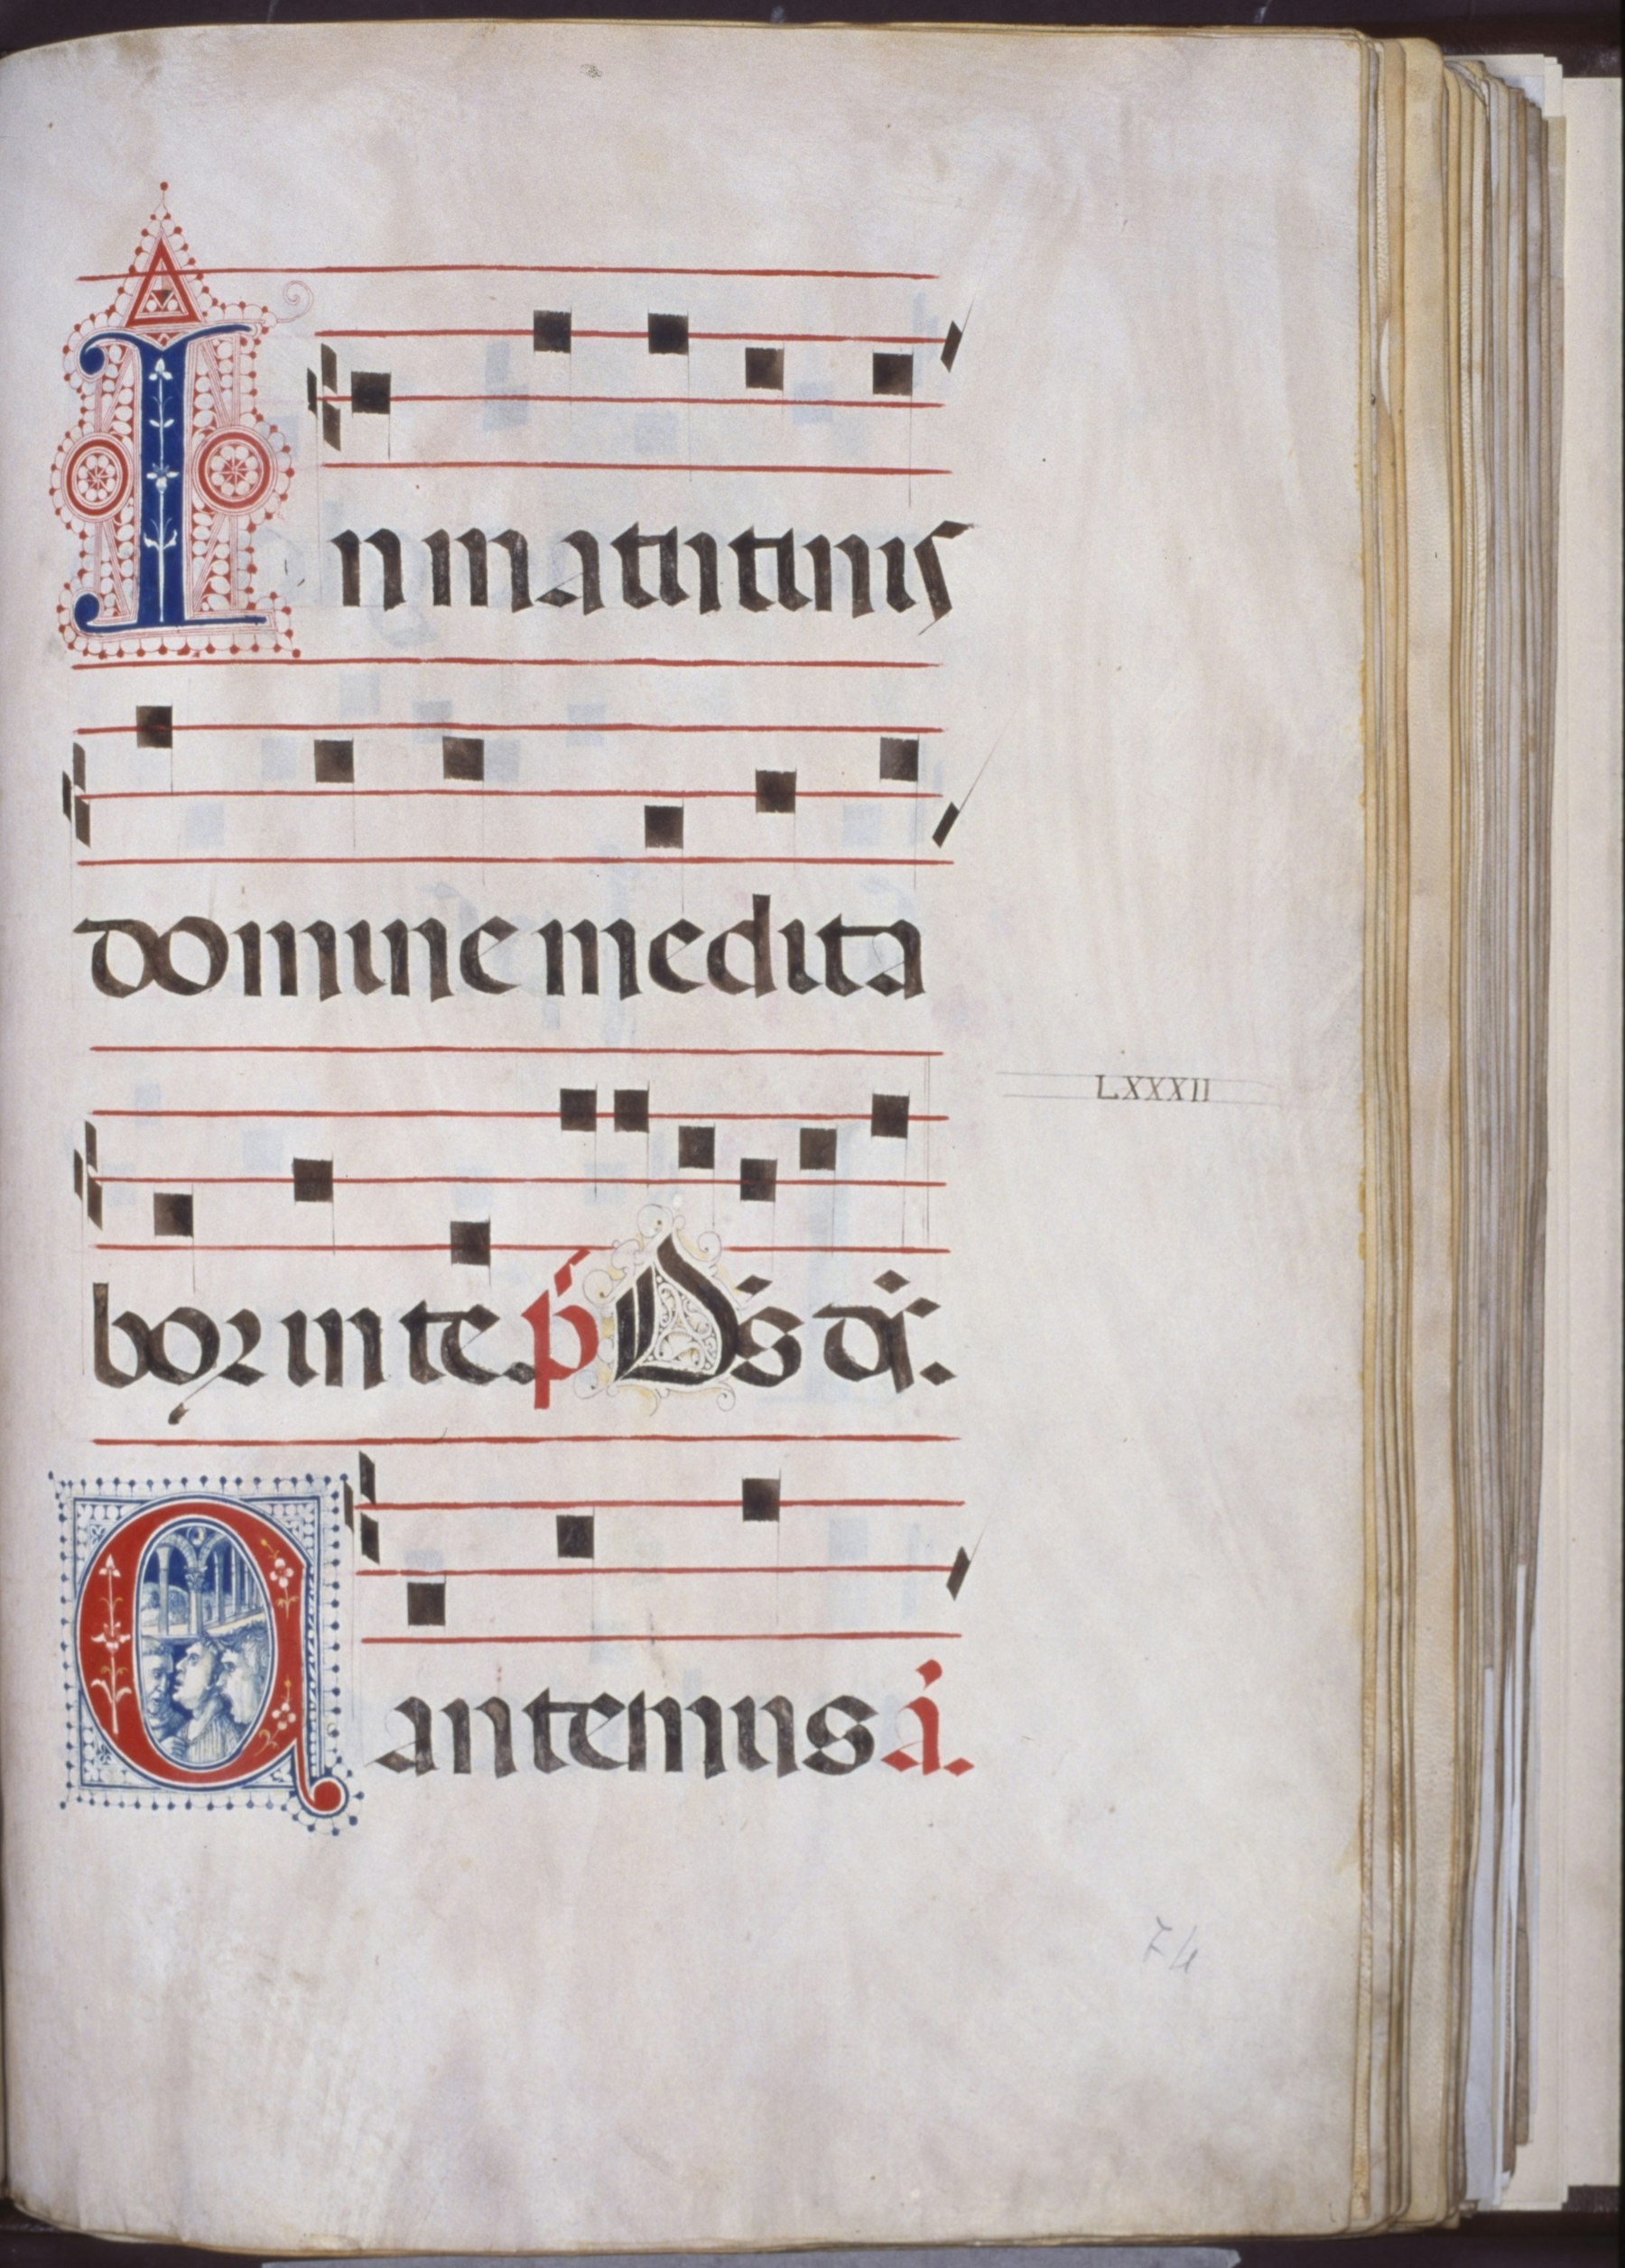 In matutinis
domine medita
bor in te. p̄ Ds̄ ds̄.
LXXXII
Cantemus a̍.
74